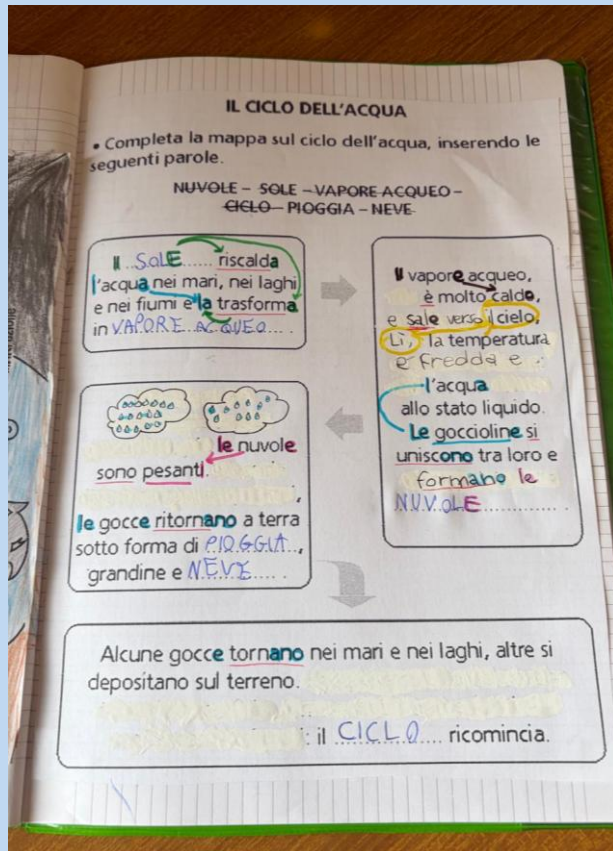 IL CICLO DELL'ACQUA
• Completa la mappa sul ciclo dell'acqua, inserendo le
seguenti parole.
NUVOLE - SOLE - VAPORE ACQUEO -
CICLO - PIOGGIA - NEVE
Il SOLE riscalda
l'acqua nei mari, nei laghi
e nei fiumi e la trasforma
in VAPORE ACQUEO.
Il vapore acqueo,
è molto caldo,
e sale verso il cielo,
Lì, la temperatura
è fredda e
l'acqua
allo stato liquido.
Le goccioline si
uniscono tra loro e
formano le
NUVOLE
le nuvole
sono pesanti.
,
le gocce ritornano a terra
sotto forma di PIOGGIA,
grandine e NEVE.
Alcune gocce tornano nei mari e nei laghi, altre si
depositano sul terreno.
: il CICLO ricomincia.